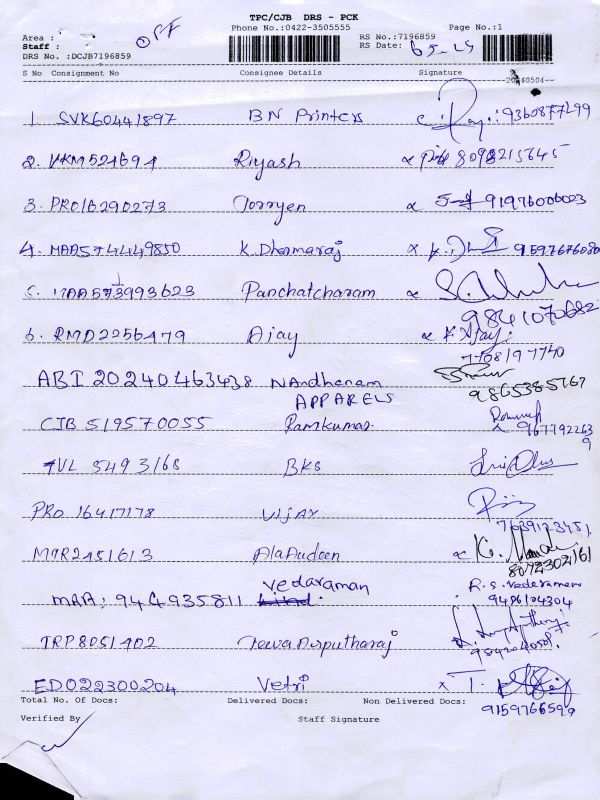 TPC/CJB DRS - PCK
Phone No.:0422-3505555 Page No.:1
Area :
OFF
Staff :
RS No.:7196859
DRS No. :DCJB7196859 RS Date:
S No Consignment No Consignee Details Signature
20240504
1 SVK60441897 BN Printers 9360877299
2. VKM521694 Riyash 8098215645
3. PRO16290273 Torryen 91976006003
4. MAA574449850 K. Dharmaraj 9597676080
5. MAA573993623 Panchatcharam
9841070682
6. RMD2256479 Ajay K Ajay
7708197740
ABI 20240463438 NAndhanam
APPARELS 9865385767
CJB 519570055 Ramkumar 9677922639
TVL 5493168 BKS
PRO 16417178 VIJAY
7639123451
MTR2451613 AlaAudeen
8072302161
MAA: 944935811 Vedaraman R.S. Vedaraman
9486124304
TRP8051402 Jeeva Arputharaj
EDO22300204 Vetri
9159766599
Total No. Of Docs: Delivered Docs: Non Delivered Docs:
Verified By Staff Signature